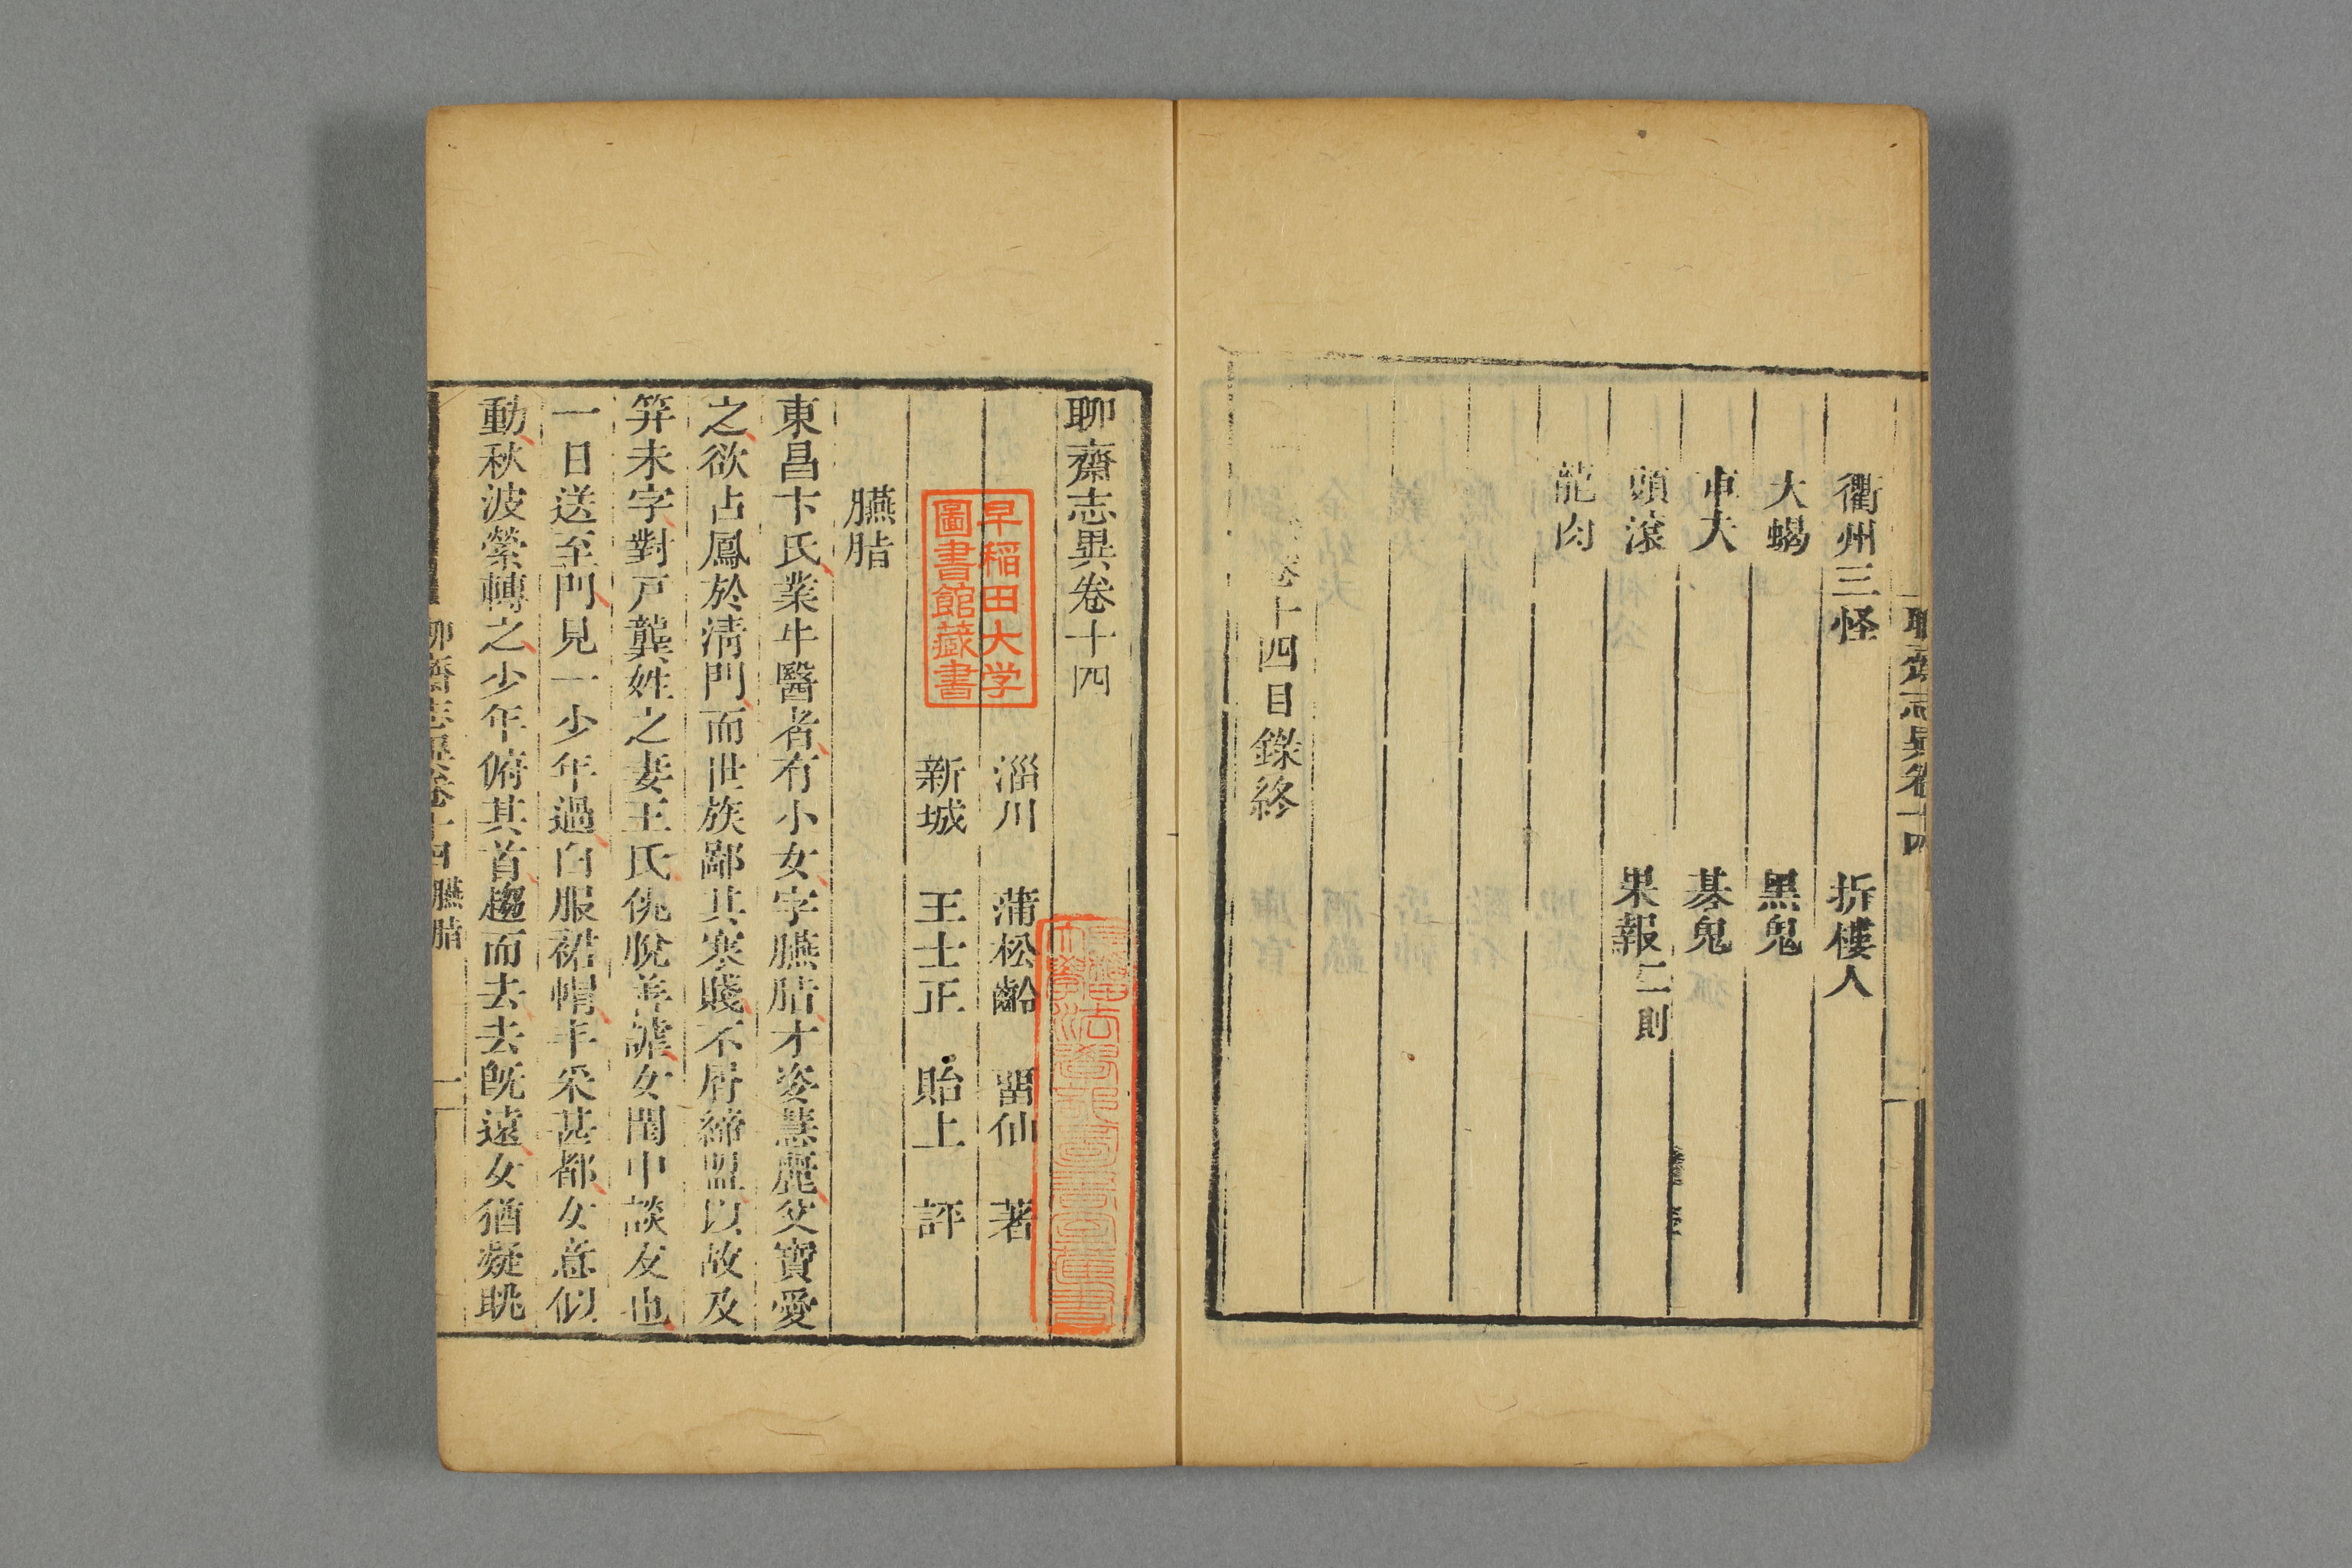 衢州三怪　折樓人
大蝎　黑鬼
車夫　碁鬼
頭滾　果報二則
龍肉
卷十四目錄終
聊齋志異卷十四
淄川　蒲松齡　畱仙　著
新城　王士正　貽上　評
臙脂
東昌卞氏業牛醫者有小女字臙脂才姿慧麗父寶愛
之欲占鳳於淸門而世族鄙其寒賤不屑締盟以故及
笄未字對戸龔姓之妻王氏佻脫善謔女閨中談友也
一日送至門見一少年過白服裙帽丰采甚都女意似
動秋波縈轉之少年俯其首趨而去去旣遠女猶凝眺
聊齋志異卷十四　臙脂　一
早稲田大学
圖書館蔵書